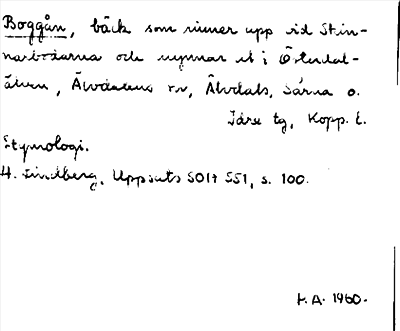 Boggån, bäck som rinner upp vid Stin-
narbodarna och mynnar ut i Österdal-
älven, Älvdalens rv, Älvdals, Särna o.
Idre tg, Kopp. l.
Etymologi.
H. Lindberg, Uppsats SOIA 551, s. 100.
H.A. 1960.